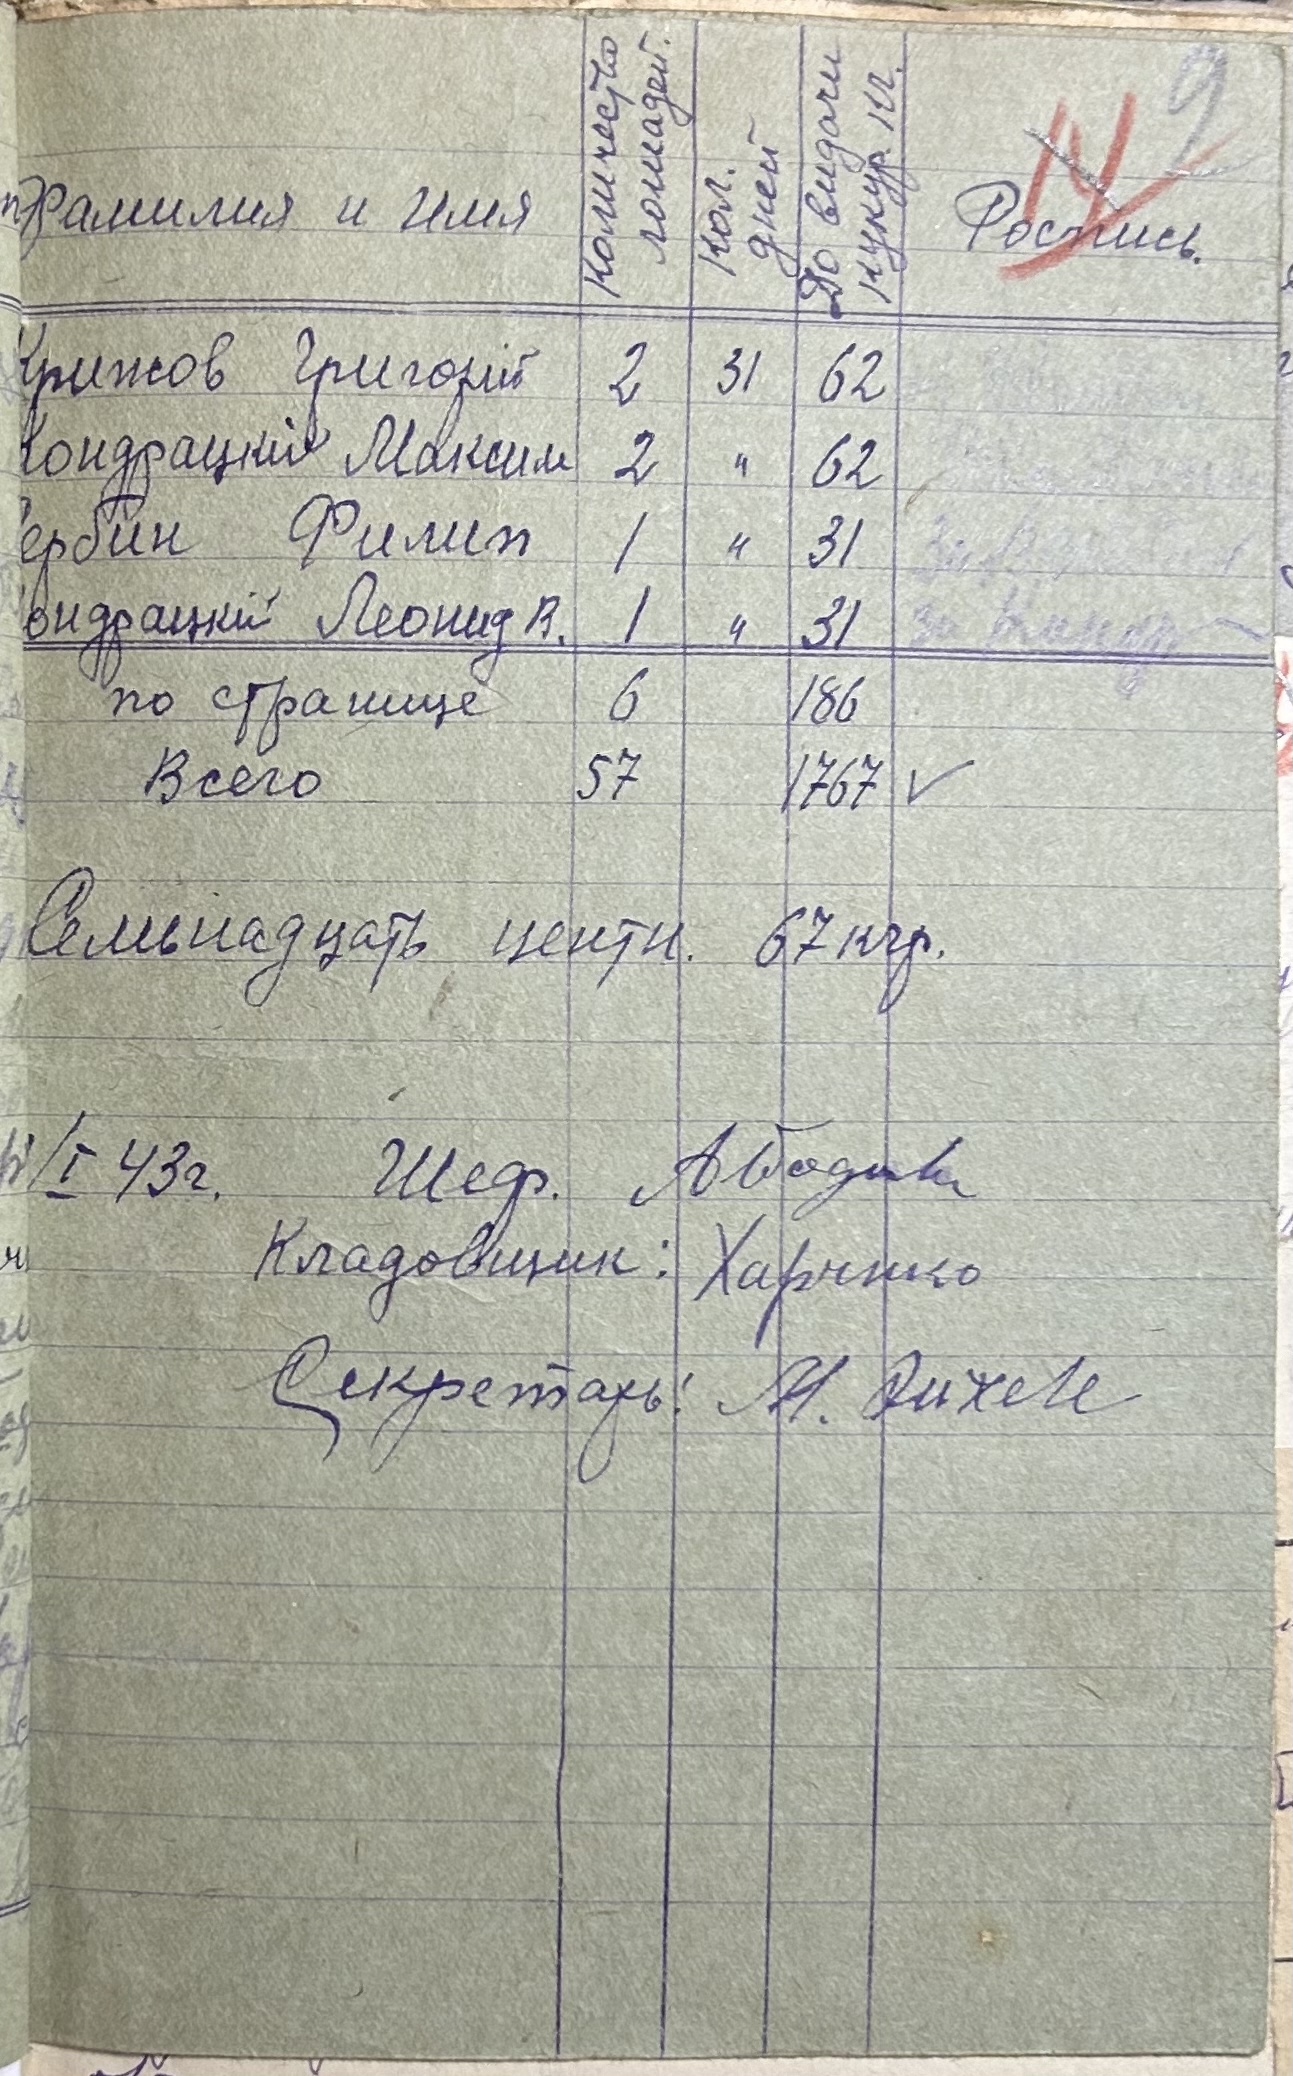 2
Фамилия и имя Количество лошадей. Кол. дней До видачи кукур. кг. Роспись.
Крижов Григорій 2 31 62
Кондрацкій Максим 2 " 62
Сербин Филип 1 " 31 За
Кондрацкій Леонид В. 1 " 31 За
по странице 6 186
Всего 57 1767 ✓
Семьнадцать центн. 67 кгр.
/I 43г. Шеф.
Кладовщик: Харченко
Секретарь: